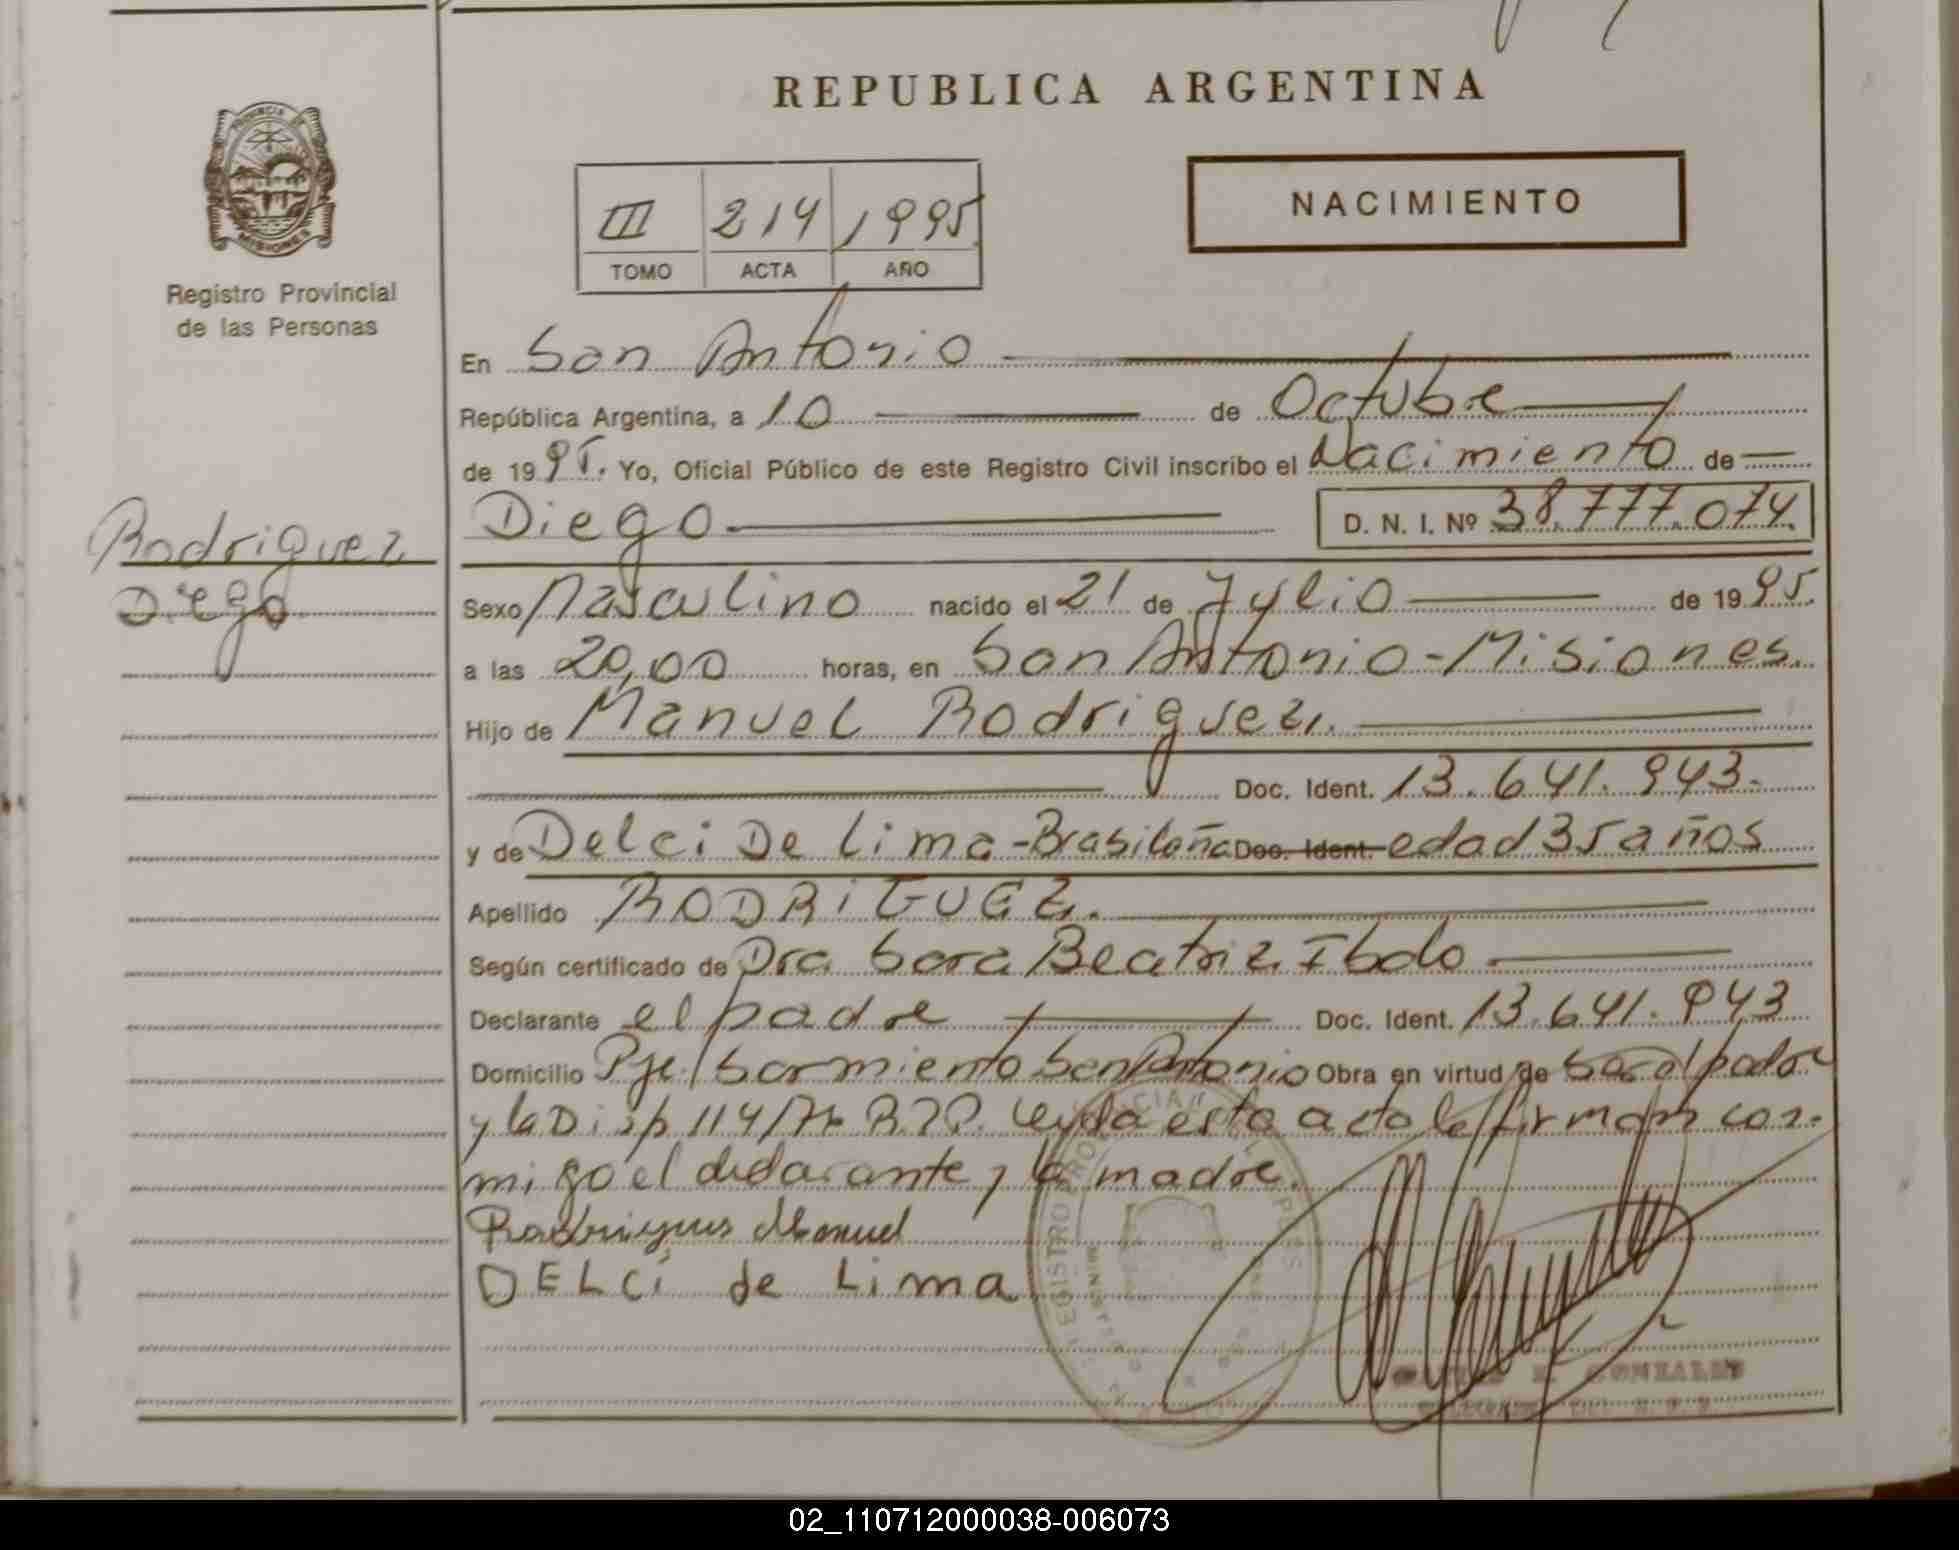 REPUBLICA ARGENTINA
PROVINCIA DE
MISIONES
Registro Provincial
de las Personas
III 214 1995
TOMO ACTA AÑO
NACIMIENTO
En San Antonio
República Argentina, a 10 de Octubre
de 1995. Yo, Oficial Público de este Registro Civil inscribo el Nacimiento de
Diego D. N. I. Nº 38.777.074.
Rodriguez
Diego
Sexo Masculino nacido el 21 de Julio de 1995.
a las 20,00 horas, en San Antonio - Misiones.
Hijo de Manuel Rodriguez.
Doc. Ident. 13.641.943.
y de Delci De Lima - Brasileña Doc. Ident. edad 35 años
Apellido RODRIGUEZ.
Según certificado de Dra Sara Beatriz
Declarante el padre Doc. Ident. 13.641.943
Domicilio Pje. Sarmiento San Antonio Obra en virtud de ser el padre
y la Disp 114/ Leyda esta acta le firman con-
migo el declarante y la madre.
Rodrigues Manuel
DELCi de Lima
GONZALES
02_110712000038-006073